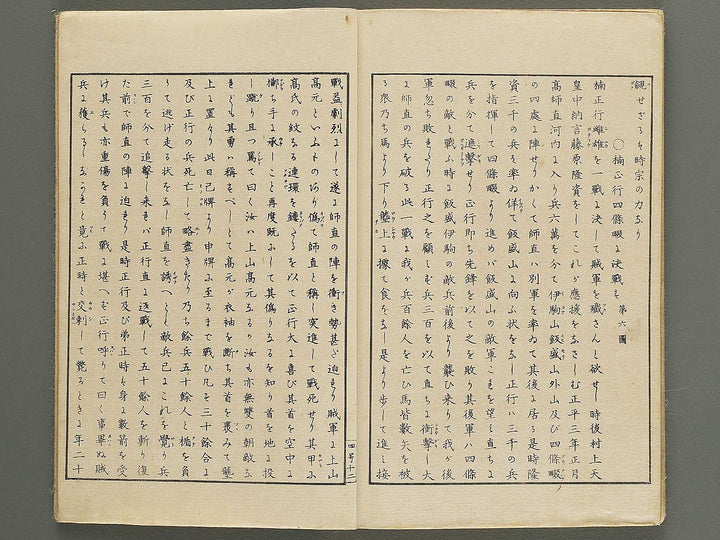 観せざるは時宗の力なり
○楠正行四條畷に決戦す 第六圖
楠正行雌雄を一戦に決して賊軍を殲さんと欲せし時後村上天
皇中納言藤原隆資をしてこれが應援をなさしむ正平三年正月
高師直河内に入り兵六萬を分て伊駒山飯盛山外山及び四條畷
の四處に陣せりかくて師直は別軍を率ゐて其後に居る是時隆
資三千の兵を率ゐ佯て飯盛山に向ふ状をなし正行は三千の兵
を指揮して四條畷より進めバ飯盛山の敵軍これを望み直ちに
兵を分て逆撃せり正行即ち先鋒を以て之を敗り其後軍ハ四條
畷の敵と戦ふ時に飯盛伊駒の敵兵前後より襲ひ来りて我が後
軍忽ち敗れたり正行之を顧みず兵三百を以て直ちに衝撃し大
に師直の兵を破る此一戦に我が兵百餘人を亡ひ馬皆數矢を被
る衆乃ち馬より下り壟上に據て食をなし是より歩して進み接
戰益劇烈にして遂に師直の陣を衝き勢甚だ迫れり賊軍に上山
高元といふものあり偽て師直と稱し突進して戦死せり其甲に
高氏の紋なる連環を鏤たるを以て正行大に喜び其首を空中に
擲ち手に承ること再度既にして其偽なるを知り首を地に投
し蹴り且つ罵て曰く汝ハ上山高元なるか汝も亦無雙の朝敵な
れども其勇ハ稱すべしとて高元が衣袖を断ち其首を裹みて壟
上に置けり此日已牌より申牌に至るまで戦ひ凡そ三十餘合に
及び正行の兵死亡して略盡きたり乃ち餘兵五十餘人と楯を負
うて逃げ走る状をなし師直を誘へども敵兵已にこれを覺り兵
三百を分て追撃し来れバ正行直に返戦して五十餘人を斬り復
た前で師直の陣に迫れり是時正行及び弟正時も身に數箭を受
け其兵も亦重傷を負うて戦に堪へず正行呼りて曰く事畢ぬ賊
兵に獲らるゝなかれと竟に正時と交刺して斃るときに年二十
四号十二